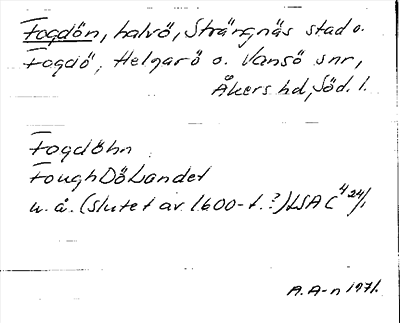 Fogdön, halvö, Strängnäs stad o.
Fogdö, Helgarö o. Vansö snr,
Åkers hd, Söd. l.
Fogdöhn
FoughDöLandet
u. å. (slutet av 1600-t.?) LSA C4 24/1
A. A-n 1971.